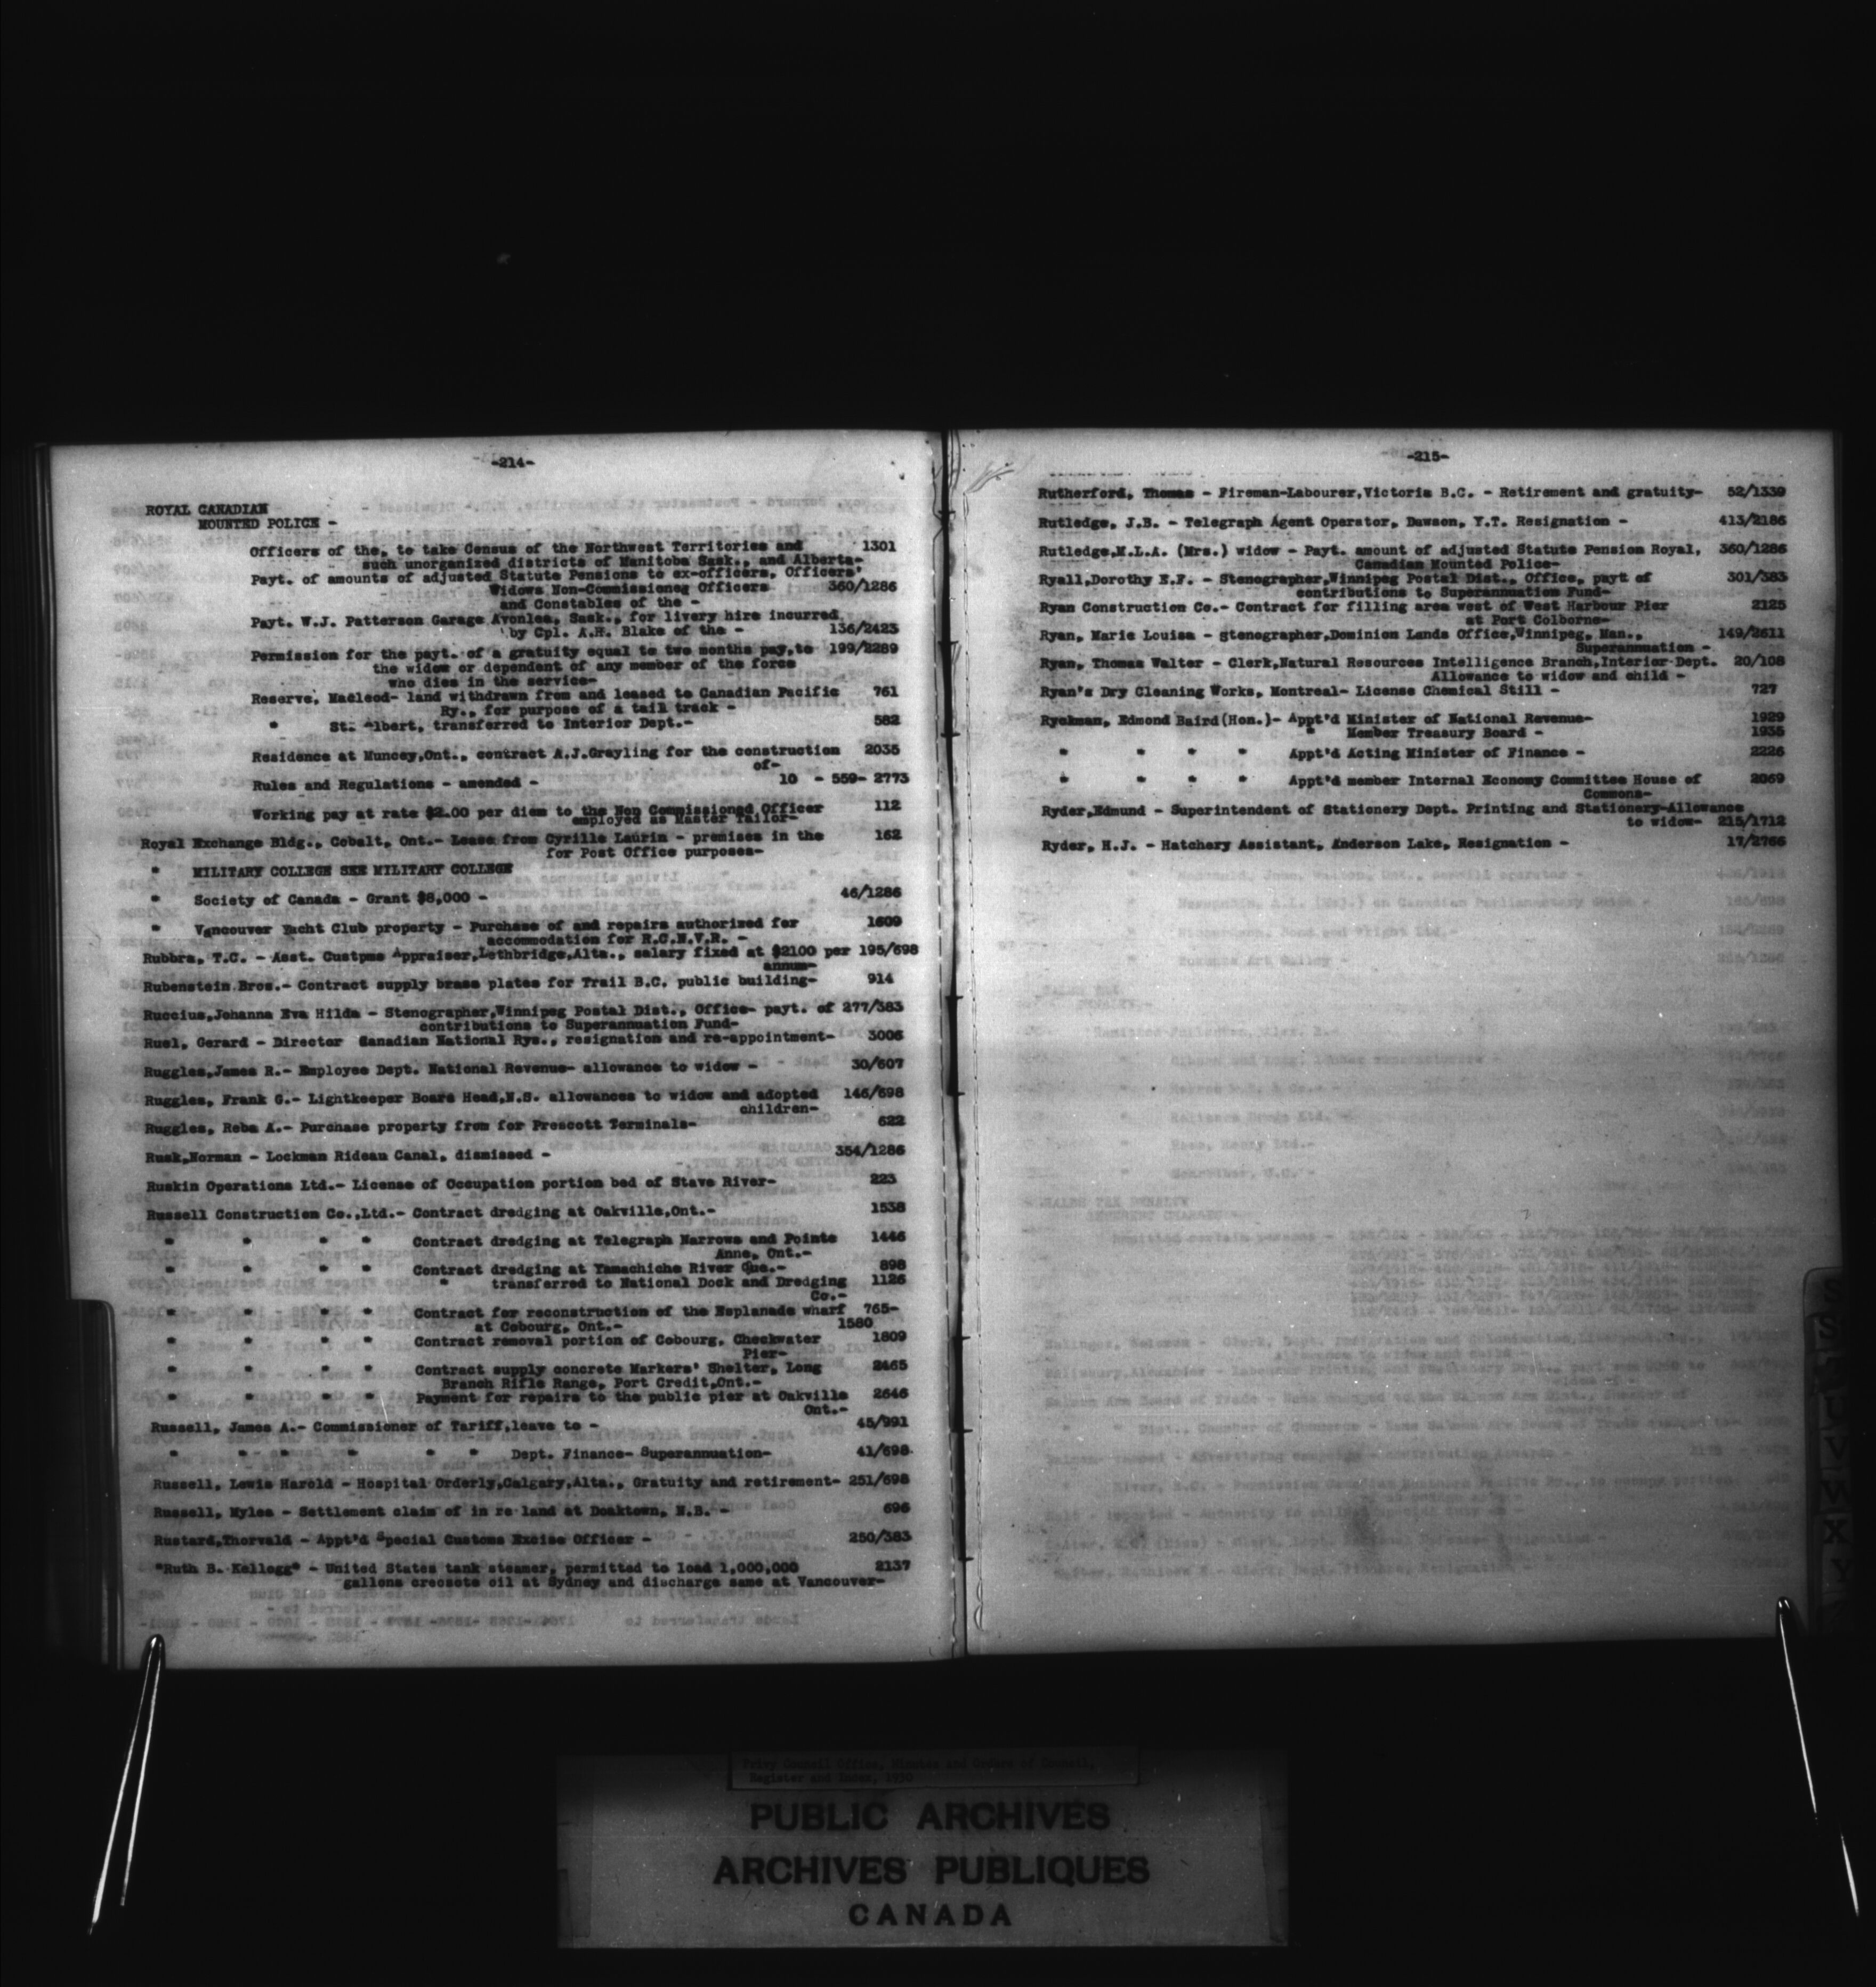 -214-
ROYAL CANADIAN
MOUNTED POLICE -
Officers of the, to take Census of the Northwest Territories and 1301
such unorganized districts of Manitoba Sask., and Alberta-
Payt. of amounts of adjusted Statute Pensions to ex-officers, Officers'
Widows Non-Commissioneg Officers 360/1286
and Constables of the -
Payt. W.J. Patterson Garage Avonlea, Sask., for livery hire incurred
by Cpl. A.H. Blake of the - 136/2423
Permission for the payt. of a gratuity equal to two months pay,to 199/2289
the widow or dependent of any member of the force
who dies in the service-
Reserve, Macleod- land withdrawn from and leased to Canadian Pacific 761
Ry., for purpose of a tail track -
" St. Albert, transferred to Interior Dept.- 582
Residence at Muncey,Ont., contract A.J.Grayling for the construction 2035
of-
Rules and Regulations - amended - 10 - 559- 2773
Working pay at rate $2.00 per diem to the Non Commissioned Officer 112
employed as Master Tailor-
Royal Exchange Bldg., Cobalt, Ont.- Lease from Cyrille Laurin - premises in the 162
for Post Office purposes-
" MILITARY COLLEGE SEE MILITARY COLLEGE
" Society of Canada - Grant $8,000 - 46/1286
" Vancouver Yacht Club property - Purchase of and repairs authorized for 1609
accommodation for R.C.N.V.R. -
Rubbra, T.C. - Asst. Custpms Appraiser,Lethbridge,Alta., salary fixed at $2100 per 195/698
annum-
Rubenstein Bros.- Contract supply brass plates for Trail B.C. public building- 914
Ruccius,Johanna Eva Hilda - Stenographer,Winnipeg Postal Dist., Office- payt. of 277/383
contributions to Superannuation Fund-
Ruel, Gerard - Director Canadian National Rys., resignation and re-appointment- 3006
Ruggles,James R.- Employee Dept. National Revenue- allowance to widow - 30/607
Ruggles, Frank G.- Lightkeeper Boars Head,N.S. allowances to widow and adopted 146/698
children-
Ruggles, Reba A.- Purchase property from for Prescott Terminals- 622
Rusk,Norman - Lockman Rideau Canal, dismissed - 354/1286
Ruskin Operations Ltd.- License of Occupation portion bed of Stave River- 223
Russell Construction Co.,Ltd.- Contract dredging at Oakville,Ont.- 1538
" " " " Contract dredging at Telegraph Narrows and Pointe 1446
Anne, Ont.-
" " " " Contract dredging at Yamachiche River Que.- 898
" transferred to National Dock and Dredging 1126
Co.-
" " " " Contract for reconstruction of the Esplanade wharf 765-
at Cobourg, Ont.- 1580
" " " " Contract removal portion of Cobourg, Checkwater 1809
Pier-
" " " " Contract supply concrete Markers' Shelter, Long 2465
Branch Rifle Range, Port Credit,Ont.-
" " " " Payment for repairs to the public pier at Oakville 2646
Ont.-
Russell, James A.- Commissioner of Tariff,leave to - 45/991
" " " " " " Dept. Finance- Superannuation- 41/698
Russell, Lewis Harold - Hospital Orderly,Calgary,Alta., Gratuity and retirement- 251/698
Russell, Myles - Settlement claim of in re land at Doaktown, N.B. - 696
Rustard,Thorvald - Appt'd Special Customs Excise Officer - 250/383
"Ruth B. Kellogg" - United States tank steamer, permitted to load 1,000,000 2137
gallons creosote oil at Sydney and discharge same at Vancouver-
-215-
Rutherford, Thomas - Fireman-Labourer,Victoria B.C. - Retirement and gratuity- 52/1339
Rutledge, J.B. - Telegraph Agent Operator, Dawson, Y.T. Resignation - 413/2186
Rutledge,M.L.A. (Mrs.) widow - Payt. amount of adjusted Statute Pension Royal, 360/1286
Canadian Mounted Police-
Ryall,Dorothy E.F. - Stenographer,Winnipeg Postal Dist., Office, payt of 301/383
contributions to Superannuation Fund-
Ryan Construction Co.- Contract for filling area west of West Harbour Pier 2125
at Port Colborne-
Ryan, Marie Louisa - stenographer,Dominion Lands Office,Winnipeg, Man., 149/2611
Superannuation -
Ryan, Thomas Walter - Clerk,Natural Resources Intelligence Branch,Interior Dept. 20/108
Allowance to widow and child -
Ryan's Dry Cleaning Works, Montreal- License Chemical Still - 727
Ryckman, Edmond Baird(Hon.)- Appt'd Minister of National Revenue- 1929
" Member Treasury Board - 1935
" " " " Appt'd Acting Minister of Finance - 2226
" " " " Appt'd member Internal Economy Committee House of 2069
Commons-
Ryder,Edmund - Superintendent of Stationery Dept. Printing and Stationery-Allowance
to widow- 215/1712
Ryder, H.J. - Hatchery Assistant, Anderson Lake, Resignation - 17/2766
Privy Council Office, Minutes and Orders in Council,
Register and Index, 1930
PUBLIC ARCHIVES
ARCHIVES PUBLIQUES
CANADA